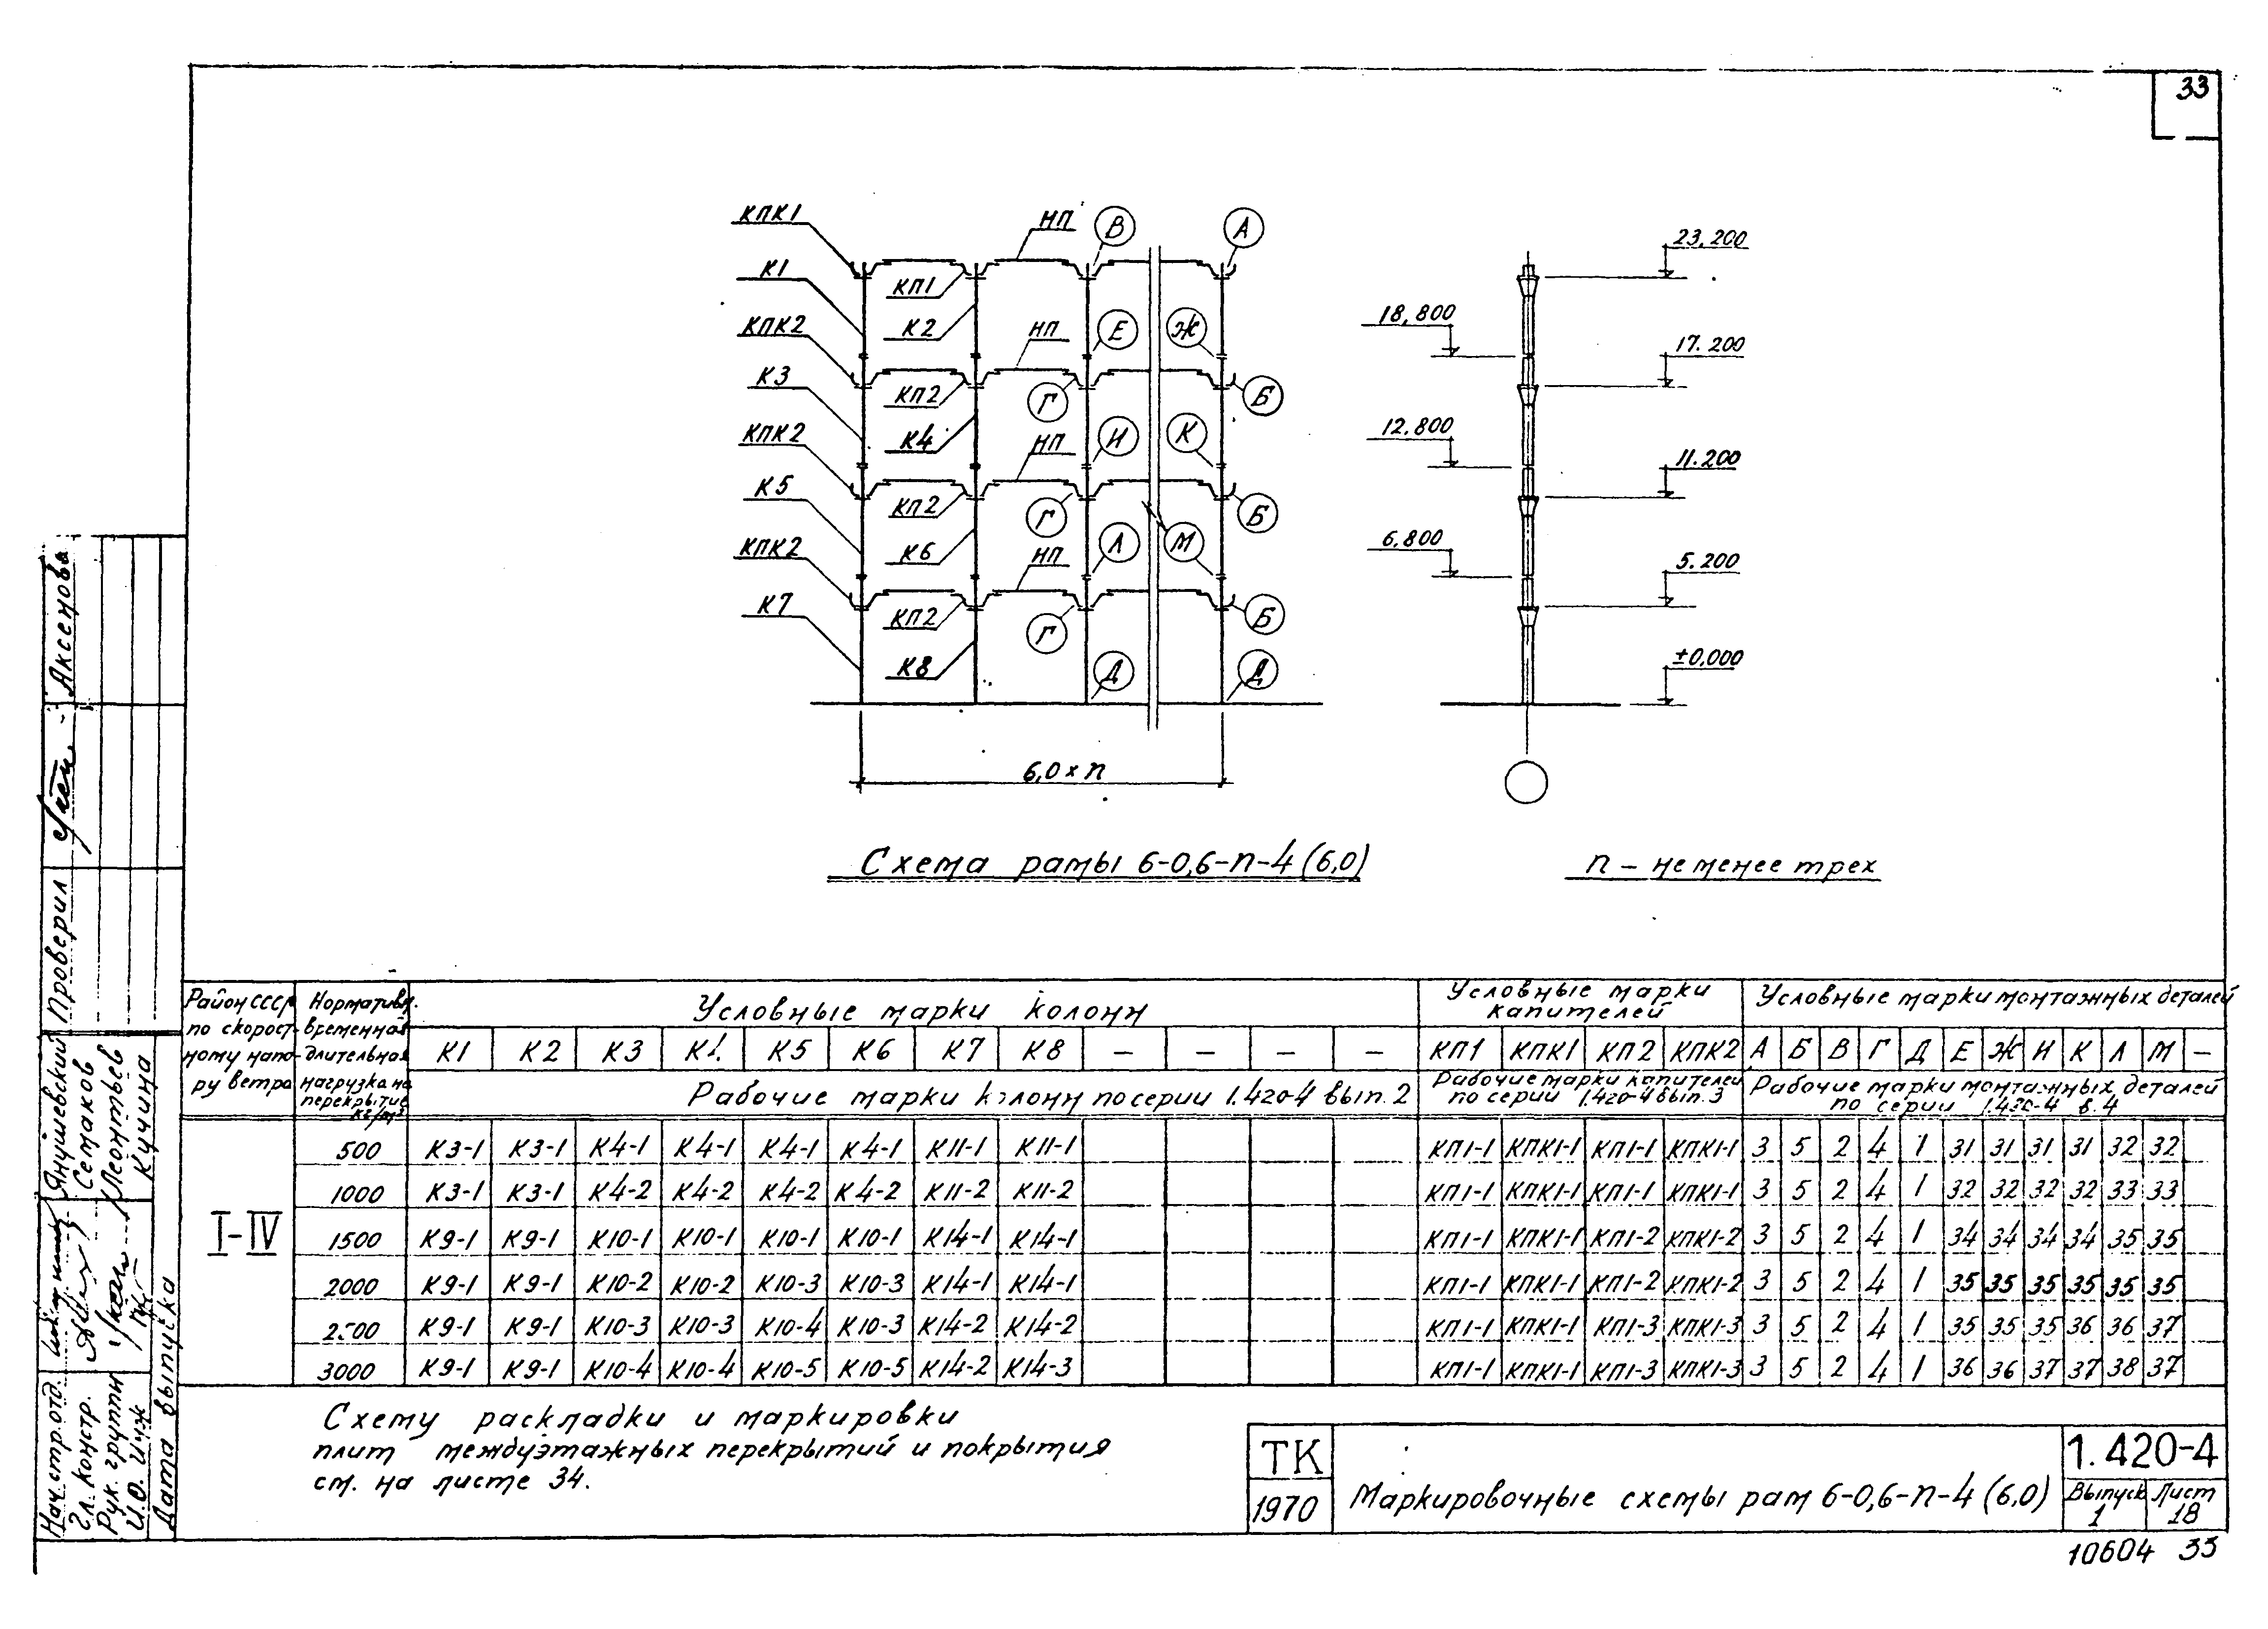 33
КПК1
К1
КПК2
К3
КПК2
К5
КПК2
К7
НП
КП1
К2
НП
КП2
К4
НП
КП2
К6
НП
КП2
К8
В
А
Е
Ж
Г
Б
И
К
Г
Б
Л
М
Г
Б
Д
Д
6,0 × п
23,200
18,800
17.200
12.800
11.200
6,800
5.200
±0,000
Схема рамы 6-0,6-п-4 (6,0)
п – не менее трех
Район СССР по скорост- ному напо- ру ветра
Нормативн. временная длительная нагрузка на перекрытие кг/м²
Условные марки колонн
Условные марки капителей
Условные марки монтажных деталей
К1 К2 К3 К4 К5 К6 К7 К8 – – – – КП1 КПК1 КП2 КПК2 А Б В Г Д Е Ж И К Л М –
Рабочие марки колонн по серии 1.420-4 вып. 2
Рабочие марки капителей по серии 1.420-4 вып. 3
Рабочие марки монтажных деталей по серии 1.420-4 в. 4
I-IV
500 К3-1 К3-1 К4-1 К4-1 К4-1 К4-1 К11-1 К11-1 КП1-1 КПК1-1 КП1-1 КПК1-1 3 5 2 4 1 31 31 31 31 32 32
1000 К3-1 К3-1 К4-2 К4-2 К4-2 К4-2 К11-2 К11-2 КП1-1 КПК1-1 КП1-1 КПК1-1 3 5 2 4 1 32 32 32 32 33 33
1500 К9-1 К9-1 К10-1 К10-1 К10-1 К10-1 К14-1 К14-1 КП1-1 КПК1-1 КП1-2 КПК1-2 3 5 2 4 1 34 34 34 34 35 35
2000 К9-1 К9-1 К10-2 К10-2 К10-3 К10-3 К14-1 К14-1 КП1-1 КПК1-1 КП1-2 КПК1-2 3 5 2 4 1 35 35 35 35 35 35
2500 К9-1 К9-1 К10-3 К10-3 К10-4 К10-3 К14-2 К14-2 КП1-1 КПК1-1 КП1-3 КПК1-3 3 5 2 4 1 35 35 35 36 36 37
3000 К9-1 К9-1 К10-4 К10-4 К10-5 К10-5 К14-2 К14-3 КП1-1 КПК1-1 КП1-3 КПК1-3 3 5 2 4 1 36 36 37 37 38 37
Схему раскладки и маркировки
плит междуэтажных перекрытий и покрытия
см. на листе 34.
ТК
1970
Маркировочные схемы рам 6-0,6-п-4 (6,0)
1.420-4
Выпуск 1
Лист 18
10604 33
Нач. стр. отд.
Янушевский
Гл. констр.
Семаков
Рук. группы
Леонтьев
И.О. инж
Кучина
Дата выпуска
Проверил
Аксенова